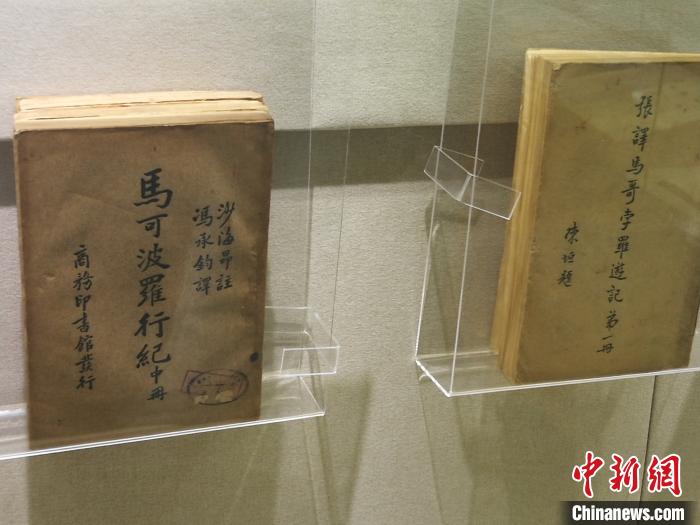 沙海昂註
馮承鈞譯
馬可波羅行紀中冊
商務印書館發行
張譯馬哥孛羅遊記第一冊
陳垣題
中新网
Chinanews.com